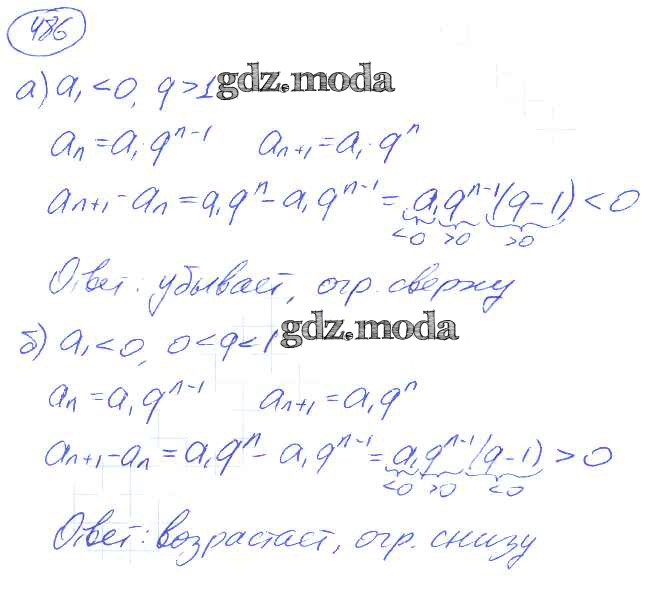 486
а) a₁ < 0, q > 1 gdz.moda
aₙ = a₁·qⁿ⁻¹ aₙ₊₁ = a₁·qⁿ
aₙ₊₁ - aₙ = a₁qⁿ - a₁qⁿ⁻¹ = a₁qⁿ⁻¹(q-1) < 0
<0 >0 >0
Ответ: убывает, огр. сверху
б) a₁ < 0, 0 < q < 1 gdz.moda
aₙ = a₁qⁿ⁻¹ aₙ₊₁ = a₁qⁿ
aₙ₊₁ - aₙ = a₁qⁿ - a₁qⁿ⁻¹ = a₁qⁿ⁻¹(q-1) > 0
<0 >0 <0
Ответ: возрастает, огр. снизу